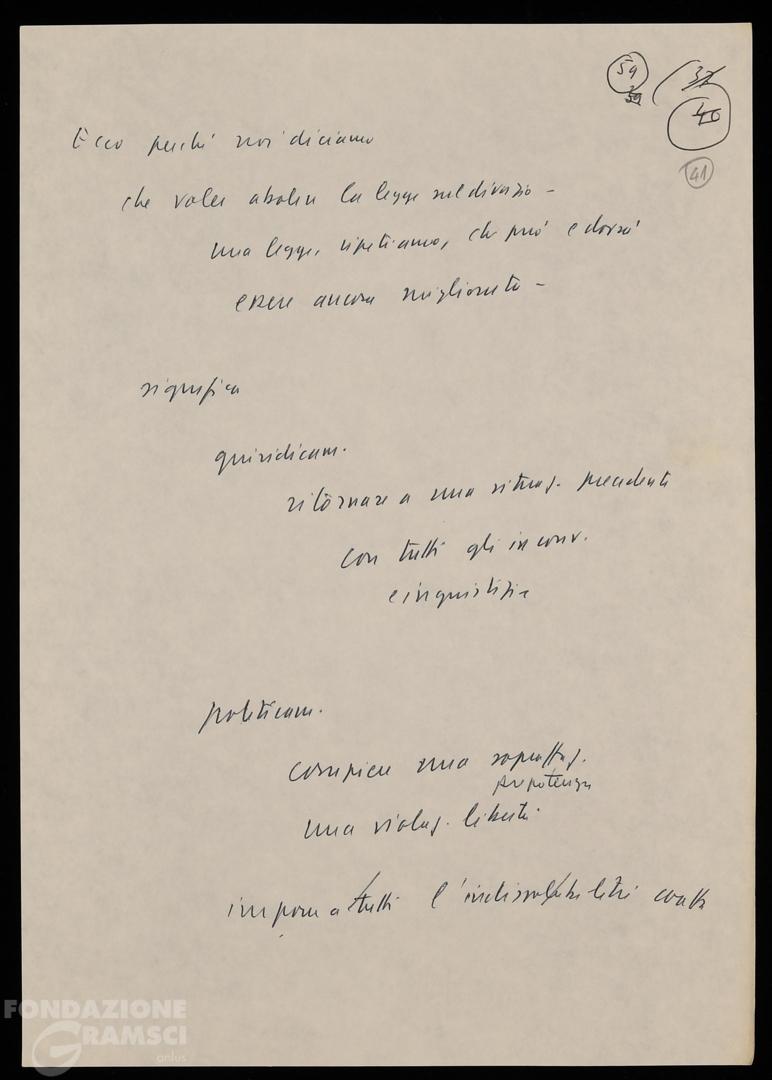 59
39
37
40
41
Ecco perché noi diciamo
che voler abolire la legge sul divorzio –
una legge, ripetiamo, che può e dovrà
essere ancora migliorata –
significa
giuridicam.
ritornare a una situaz. precedente
con tutti gli inconv.
e ingiustizie
politicam.
compiere una sopraffaz.
prepotenza
una violaz. libertà
imporre a tutti l'indissolubilità coatta
FONDAZIONE
GRAMSCI
onlus